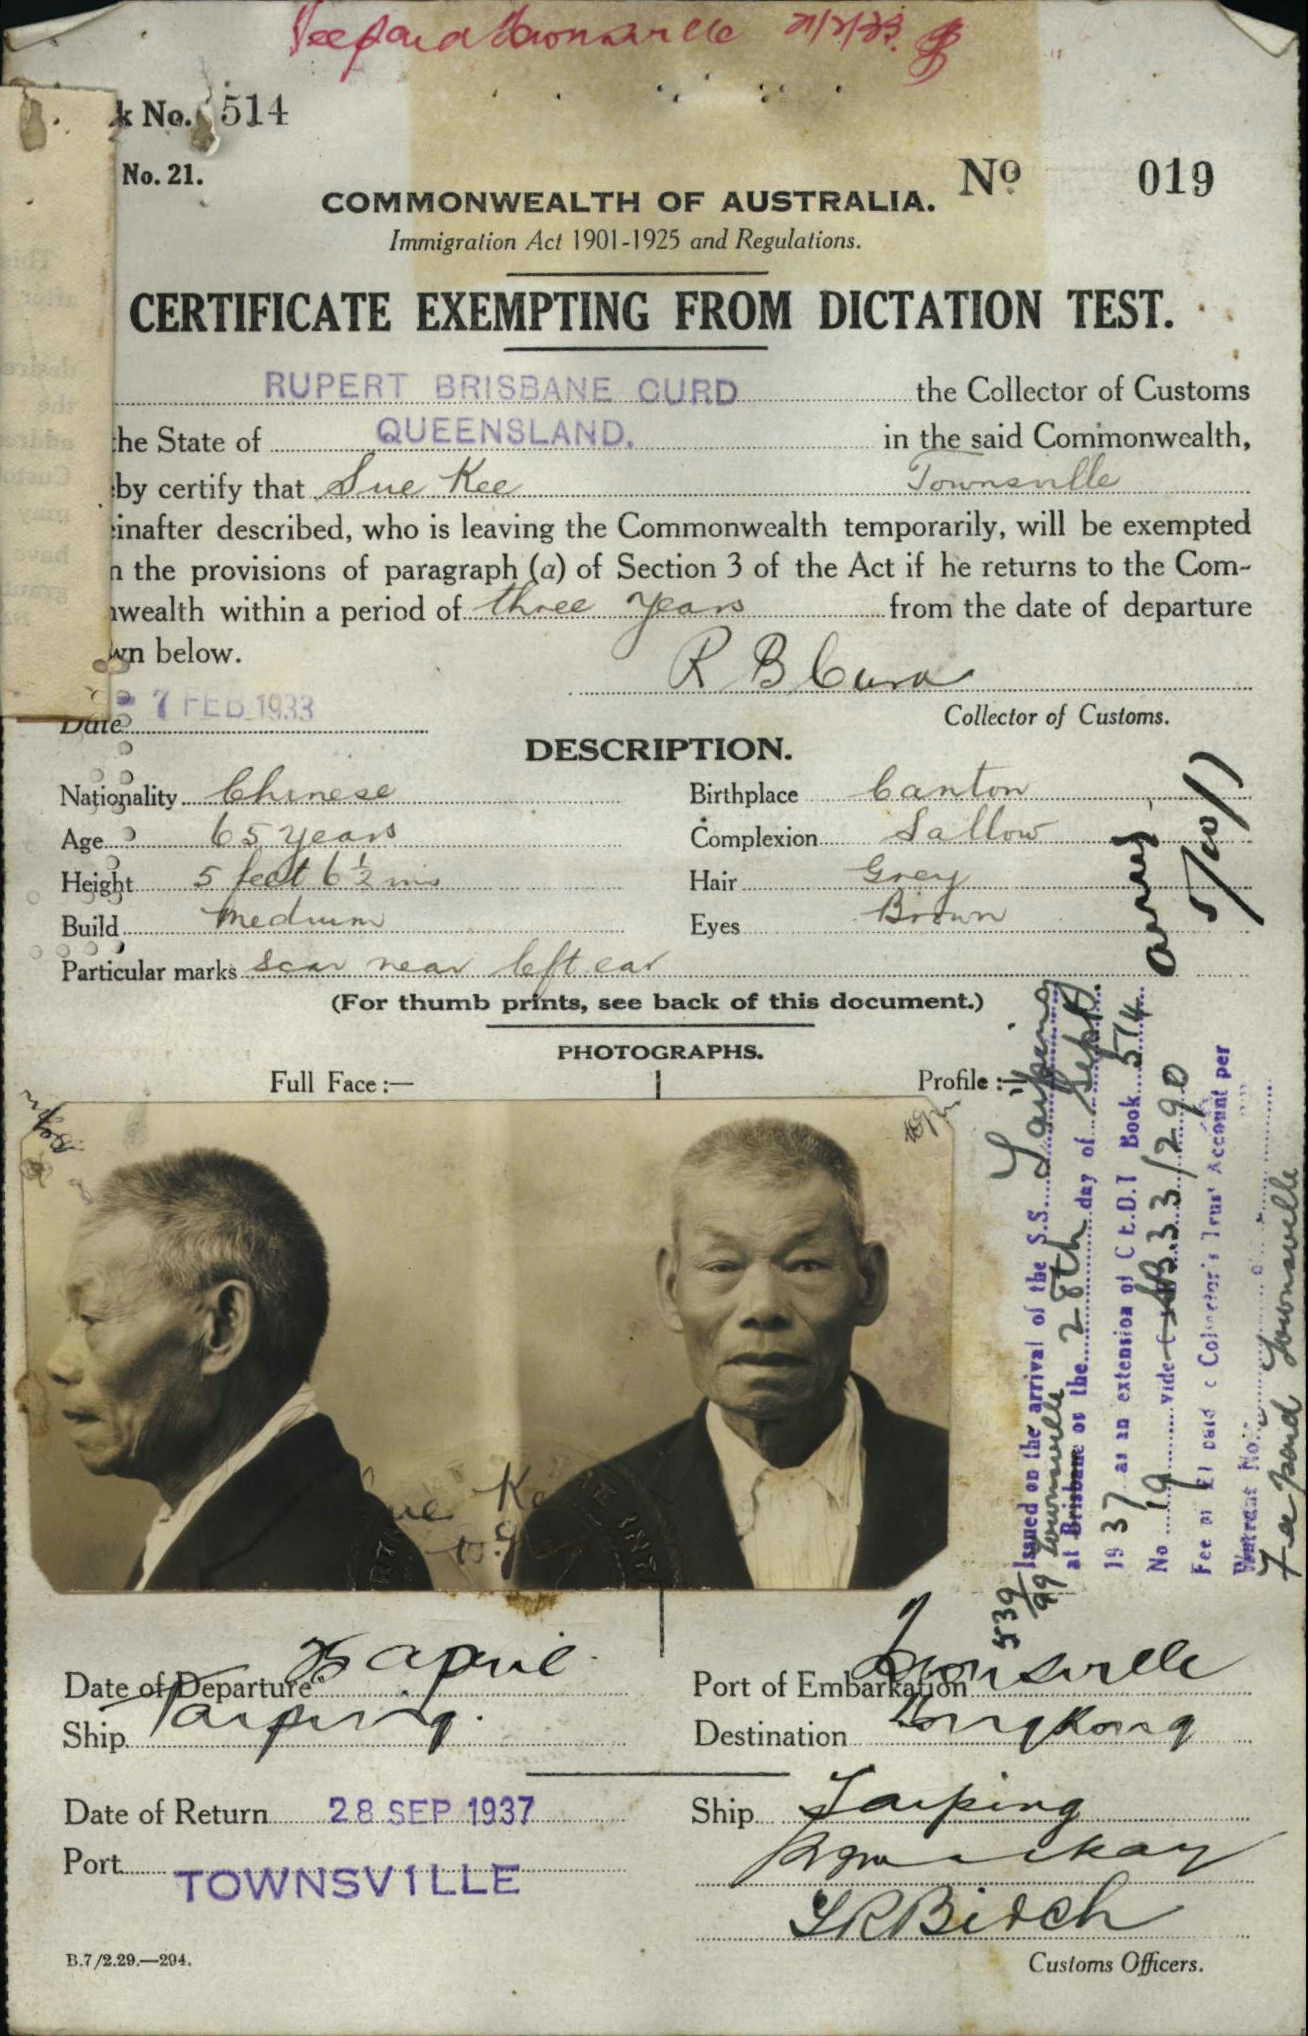 Fee paid Townsville 21/2/33.
k No. 514
No. 21.
No 019
COMMONWEALTH OF AUSTRALIA.
Immigration Act 1901-1925 and Regulations.
CERTIFICATE EXEMPTING FROM DICTATION TEST.
RUPERT BRISBANE CURD the Collector of Customs
the State of QUEENSLAND. in the said Commonwealth,
by certify that Sue Kee Townsville
einafter described, who is leaving the Commonwealth temporarily, will be exempted
the provisions of paragraph (a) of Section 3 of the Act if he returns to the Com-
wealth within a period of three years from the date of departure
wn below.
R B Curd
7 FEB 1933
Date
Collector of Customs.
DESCRIPTION.
Nationality Chinese Birthplace Canton
Age 65 years Complexion Sallow
Height 5 feet 6 ½ ins Hair Grey
Build Medium Eyes Brown
Particular marks scar near left ear
(For thumb prints, see back of this document.)
PHOTOGRAPHS.
Full Face :— Profile :—
Sue Kee
Issued on the arrival of the S.S. Taiping
at Brisbane Townsville on the 28th day of Sept.
1937 as an extension of C.E.D.T Book 514
No 19 vide 33/290
Fee of £1 paid Collector's Trust Account per
Warrant No.
Fee paid Townsville
539/99
Date of Departure 25 April Port of Embarkation Townsville
Ship Taiping. Destination Hong Kong
Date of Return 28 SEP 1937 Ship Taiping
Port TOWNSVILLE
Customs Officers.
B.7/2.29.—294.